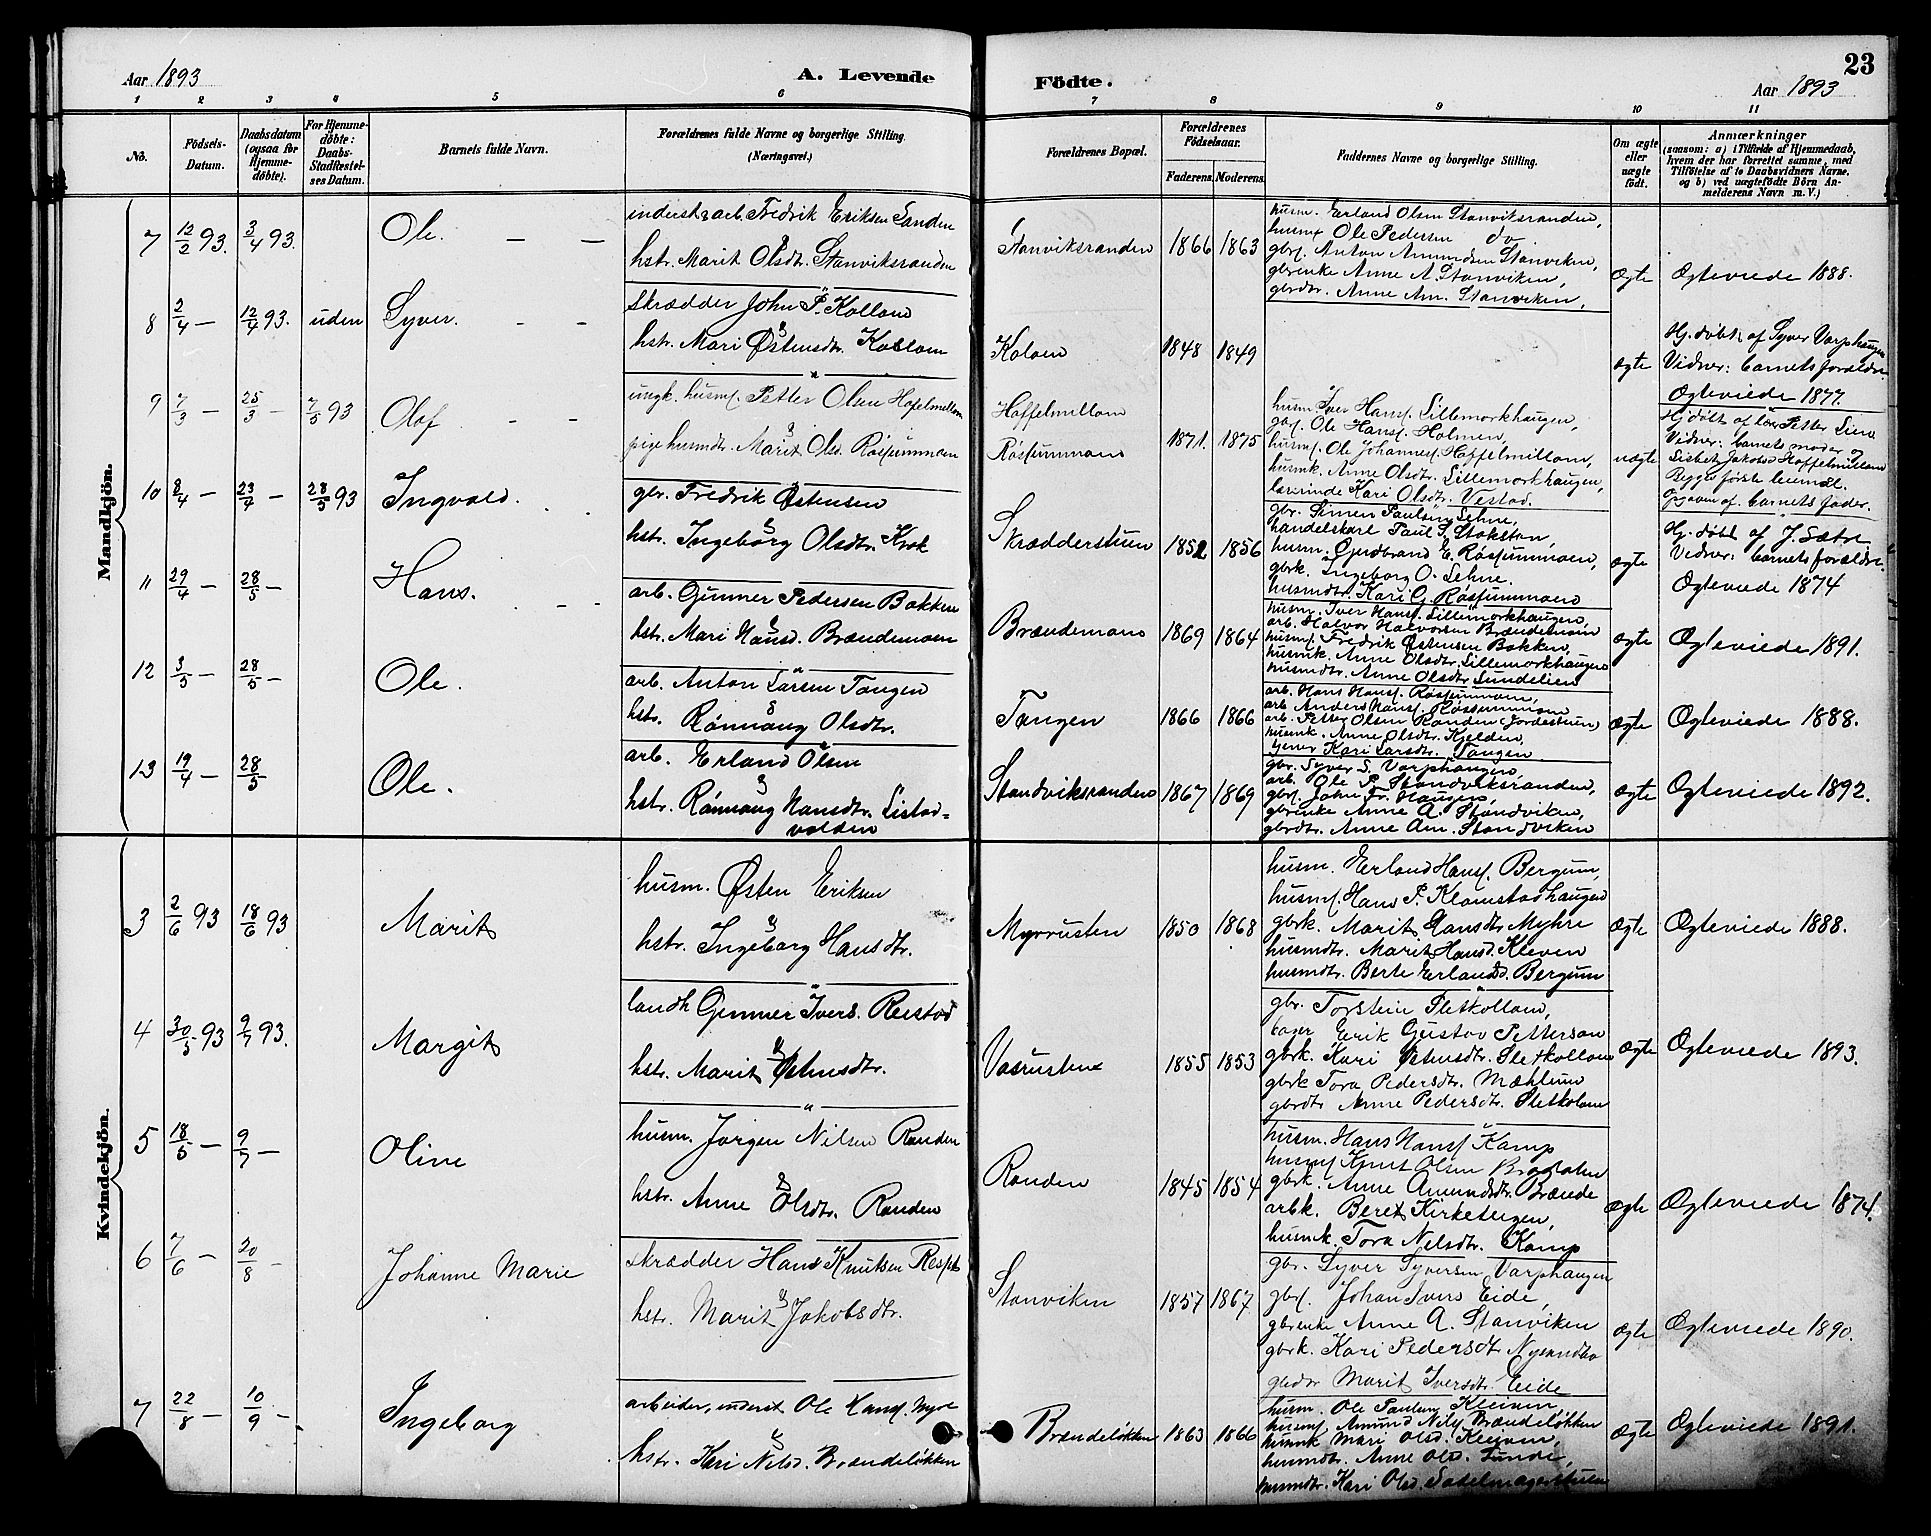 Aar 1893
A. Levende Födte.
23
Aar 1893
1 2 3 4 5 6 7 8 9 10 11
No.
Födsels-Datum.
Daabsdatum (ogsaa for Hjemmedöbte).
For Hjemmedöbte: Daabs-Stadfæstelses Datum.
Barnets fulde Navn.
Forældrenes fulde Navne og borgerlige Stilling. (Næringsvei.)
Forældrenes Bopæl.
Forældrenes Födselsaar.
Faderens. Moderens.
Faddernes Navne og borgerlige Stilling.
Om ægte eller uægte födt.
Anmærkninger (saasom: a) i Tilfælde af Hjemmedaab, hvem der har forrettet samme, med Tilföielse af to Daabsvidners Navne, og b) ved uægtefödte Börn Anmelderens Navn m. V.)
Mandkjön.
7 12/2 93. 3/4 93. Ole. — —
Fredrik Eriksen Sanden
hstr. Marit Olsdtr. Stanviksranden
Stanviksranden 1866 1863
husm. Erland Olsen Stanviksranden,
husmf Ole Pedersen do
gbrf. Anton Amundsen Stanviken,
gbrenke Anne A. Stanviken,
gbrdtr. Anne Am. Stanviken,
ægte Ægteviede 1888.
8 2/4 — 12/4 93. uden Syver. - -
skrædder John P. Kolloen
&
hstr. Mari Østensdtr. Kolloen
Koloen 1848 1849
ægte
Hj. døbt af Syver Varphaugen
Vidner: barnets forældre.
Ægteviede 1877.
9 7/3 — 25/3 — 7/5 93 Olaf - -
ungk. husmf. Petter Olsen Hoffelmellom
&
pige husmdtr. Marit Olsd. Røssummoen
Hoffelmellom
Røssummoen 1871. 1875
husm. Iver Hansf. Lillemorkhaugen,
gbrf. Ole Hansf. Holmen,
husmf. Ole Johannesf. Hoffelmellom,
husmk. Anne Olsdtr. Lillemorkhaugen,
lærerinde Kari Olsdtr. Vestad.
uægte
Hj. døbt af Petter Lien
Vidner: barnets moder og
Lisbet Jakobsd Hoffelmellom
Begges første leiermål.
Opgaven af barnets fader.
10 8/4 — 23/4 — 28/5 93 Ingvald. . .
gbr. Fredrik Østensen
&
hstr. Ingeborg Olsdtr. Krok
Skrædderstuen 1852 1856
gbr. Simen Paulsen Lehne,
handelskarl Paul S. Stokstad,
husm. Gudbrand E. Røssummoen,
gbrk. Ingeborg O. Lehne.
husmdtr. Kari G. Røssummoen
ægte
Hj. døbt af J. Sætre
Vidner: barnets forældre.
Ægteviede 1874
11 29/4 — 28/5 — Hans. - -
arb. Gunner Pedersen Bakken
&
hstr. Mari Hansd. Brændemoen
Brændemoen 1869 1864
husm. Iver Hansf. Lillemorkhaugen,
arb. Halvor Halvorsen Brændemoen
husmf. Fredrik Østensen Bakken,
husmk. Anne Olsdtr. Lillemorkhaugen
husmdtr. Anne Olsdtr. Sundelien
ægte Ægteviede 1891.
12 3/5 — 28/5 — Ole.
arb. Anton Larsen Tangen
&
hstr. Rønnaug Olsdtr.
Tangen 1866 1866
arb. Hans Hansf. Røssummoen,
arb. Anders Hansf. Røssummoen
arb. Petter Olsen Randen
husmk. Anne Olsdtr. Kjelden,
Kari Larsdtr. Tangen
ægte Ægteviede 1888.
13 19/4 — 28/5 Ole.
arb. Erland Olsen
&
hstr. Rønnaug Hansdtr. Listad-
volden
Standviksranden 1867 1869
gbr. Syver S. Varphaugen,
arb. Ole P. Standviksranden,
gbrf. John Fr. Haugen,
gbrenke Anne A. Standviken,
gbrdtr. Anne Am. Standviken
ægte Ægteviede 1892.
Kvindekjön.
3 2/6 93 18/6 93 Marit
husm. Østen Eriksen
&
hstr. Ingeborg Hansdtr.
Myrrusten 1850 1868
husm. Erland Hansf. Bergum,
husmf. Hans P. Klomstadhaugen
gbrk. Marit Hansdtr Myhre
husmdtr. Marit Hansd. Kleven
husmdtr. Berte Erlandsd. Bergum
ægte Ægteviede 1888.
4 30/5 93 9/7 93. Margit
landh Gunner Ivers. Reistad
&
hstr. Marit Østensdtr.
Vasrusten 1855 1853
gbr. Torstein Sletkolloen,
Erik Gustav Petterson
gbrk. Kari Østensdtr. Sletkolloen
gbrk Tora Pedersdtr. Mæhlum
gbrdtr Anne Pedersdtr. Sletkoloen
ægte Ægteviede 1893.
5 18/5 — 9/7 — Oline
husm. Jørgen Nilsen Randen
&
hstr. Anne Olsdtr. Randen
Randen 1845 1854
husm. Hans Hansf Kamp
husmf Knut Olsen
gbrk. Anne Amundsdtr. Brænde
arbk. Beret Kirkestugen,
husmk. Tora Nilsdtr. Kamp
ægte Ægteviede 1874.
6 7/6 — 20/8 — Johanne Marie
skrædder Hans Knutsen
&
hstr. Marit Jakobsdtr.
Stanviken 1857 1867
gbr. Syver Syversen Varphaugen
gbrf. Johan Ivers Eide,
gbrenke Anne A. Stanviken
gbrk. Kari Pedersdtr
gbrdtr Marit Iversdtr. Eide
ægte Ægteviede 1890.
7 22/8 — 10/9 — Ingeborg
arbeider, inderst Ole Hansf. Myre
&
hstr. Kari Nilsd. Brændeløkken
Brændeløkken 1863 1866
husm. Ole Paulsen Kleiven,
husmf. Amund Nilsf Brændeløkken
husmk Mari Olsd. Kleiven,
husmdtr. Anne Olsd. Sunde,
husmdtr. Kari Olsd. Sadelmagerstuen
ægte Ægteviede 1891.